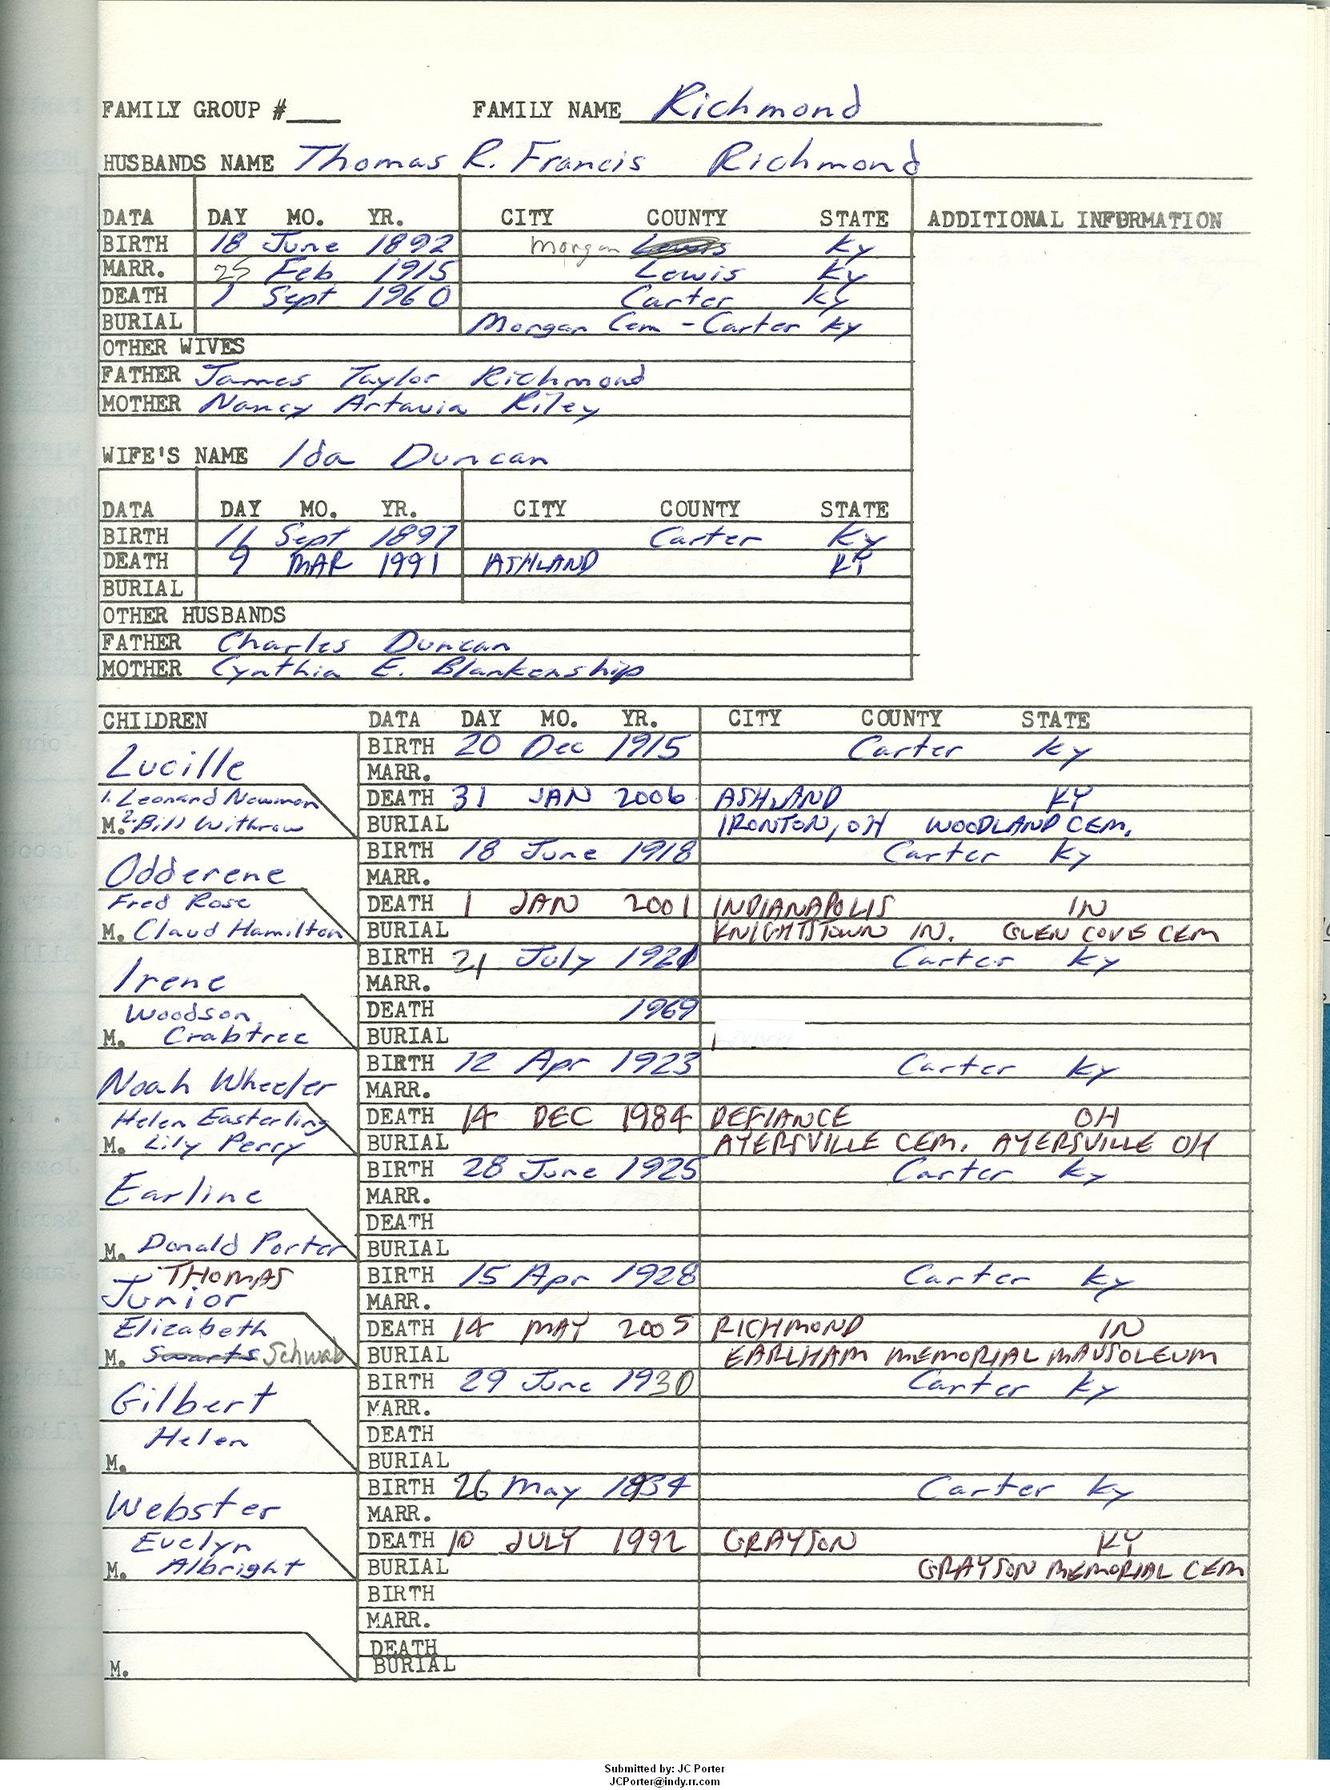 FAMILY GROUP #___ FAMILY NAME Richmond
HUSBANDS NAME Thomas R. Francis Richmond
DATA DAY MO. YR. CITY COUNTY STATE ADDITIONAL INFORMATION
BIRTH 18 June 1892 Morgan Lewis Ky
MARR. 25 Feb 1915 Lewis Ky
DEATH 1 Sept 1960 Carter Ky
BURIAL Morgan Cem - Carter Ky
OTHER WIVES
FATHER James Taylor Richmond
MOTHER Nancy Artavia Riley
WIFE'S NAME Ida Duncan
DATA DAY MO. YR. CITY COUNTY STATE
BIRTH 11 Sept 1897 Carter Ky
DEATH 9 MAR 1991 ASHLAND KY
BURIAL
OTHER HUSBANDS
FATHER Charles Duncan
MOTHER Cynthia E. Blankenship
CHILDREN DATA DAY MO. YR. CITY COUNTY STATE
Lucille BIRTH 20 Dec 1915 Carter Ky
MARR.
1. Leonard Newman DEATH 31 JAN 2006 ASHLAND KY
M. 2. Bill Withrow BURIAL IRONTON, OH WOODLAND CEM.
Odderene BIRTH 18 June 1918 Carter Ky
MARR.
Fred Rose DEATH 1 JAN 2001 INDIANAPOLIS IN
M. Claud Hamilton BURIAL KNIGHTSTOWN IN. GLEN COVE CEM
Irene BIRTH 21 July 1921 Carter Ky
MARR.
Woodson DEATH 1969
M. Crabtree BURIAL
Noah Wheeler BIRTH 12 Apr 1923 Carter Ky
MARR.
Helen Easterling DEATH 14 DEC 1984 DEFIANCE OH
M. Lily Perry BURIAL AYERSVILLE CEM. AYERSVILLE OH
Earline BIRTH 28 June 1925 Carter Ky
MARR.
DEATH
M. Donald Porter BURIAL
THOMAS BIRTH 15 Apr 1928 Carter Ky
Junior MARR.
Elizabeth DEATH 14 MAY 2005 RICHMOND IN
M. Swarts Schwab BURIAL EARLHAM MEMORIAL MAUSOLEUM
Gilbert BIRTH 29 June 1930 Carter Ky
MARR.
Helen DEATH
M. BURIAL
Webster BIRTH 26 May 1934 Carter Ky
MARR.
Evelyn DEATH 10 JULY 1992 GRAYSON KY
M. Albright BURIAL GRAYSON MEMORIAL CEM
BIRTH
MARR.
DEATH
M. BURIAL
Submitted by: JC Porter
JCPorter@indy.rr.com